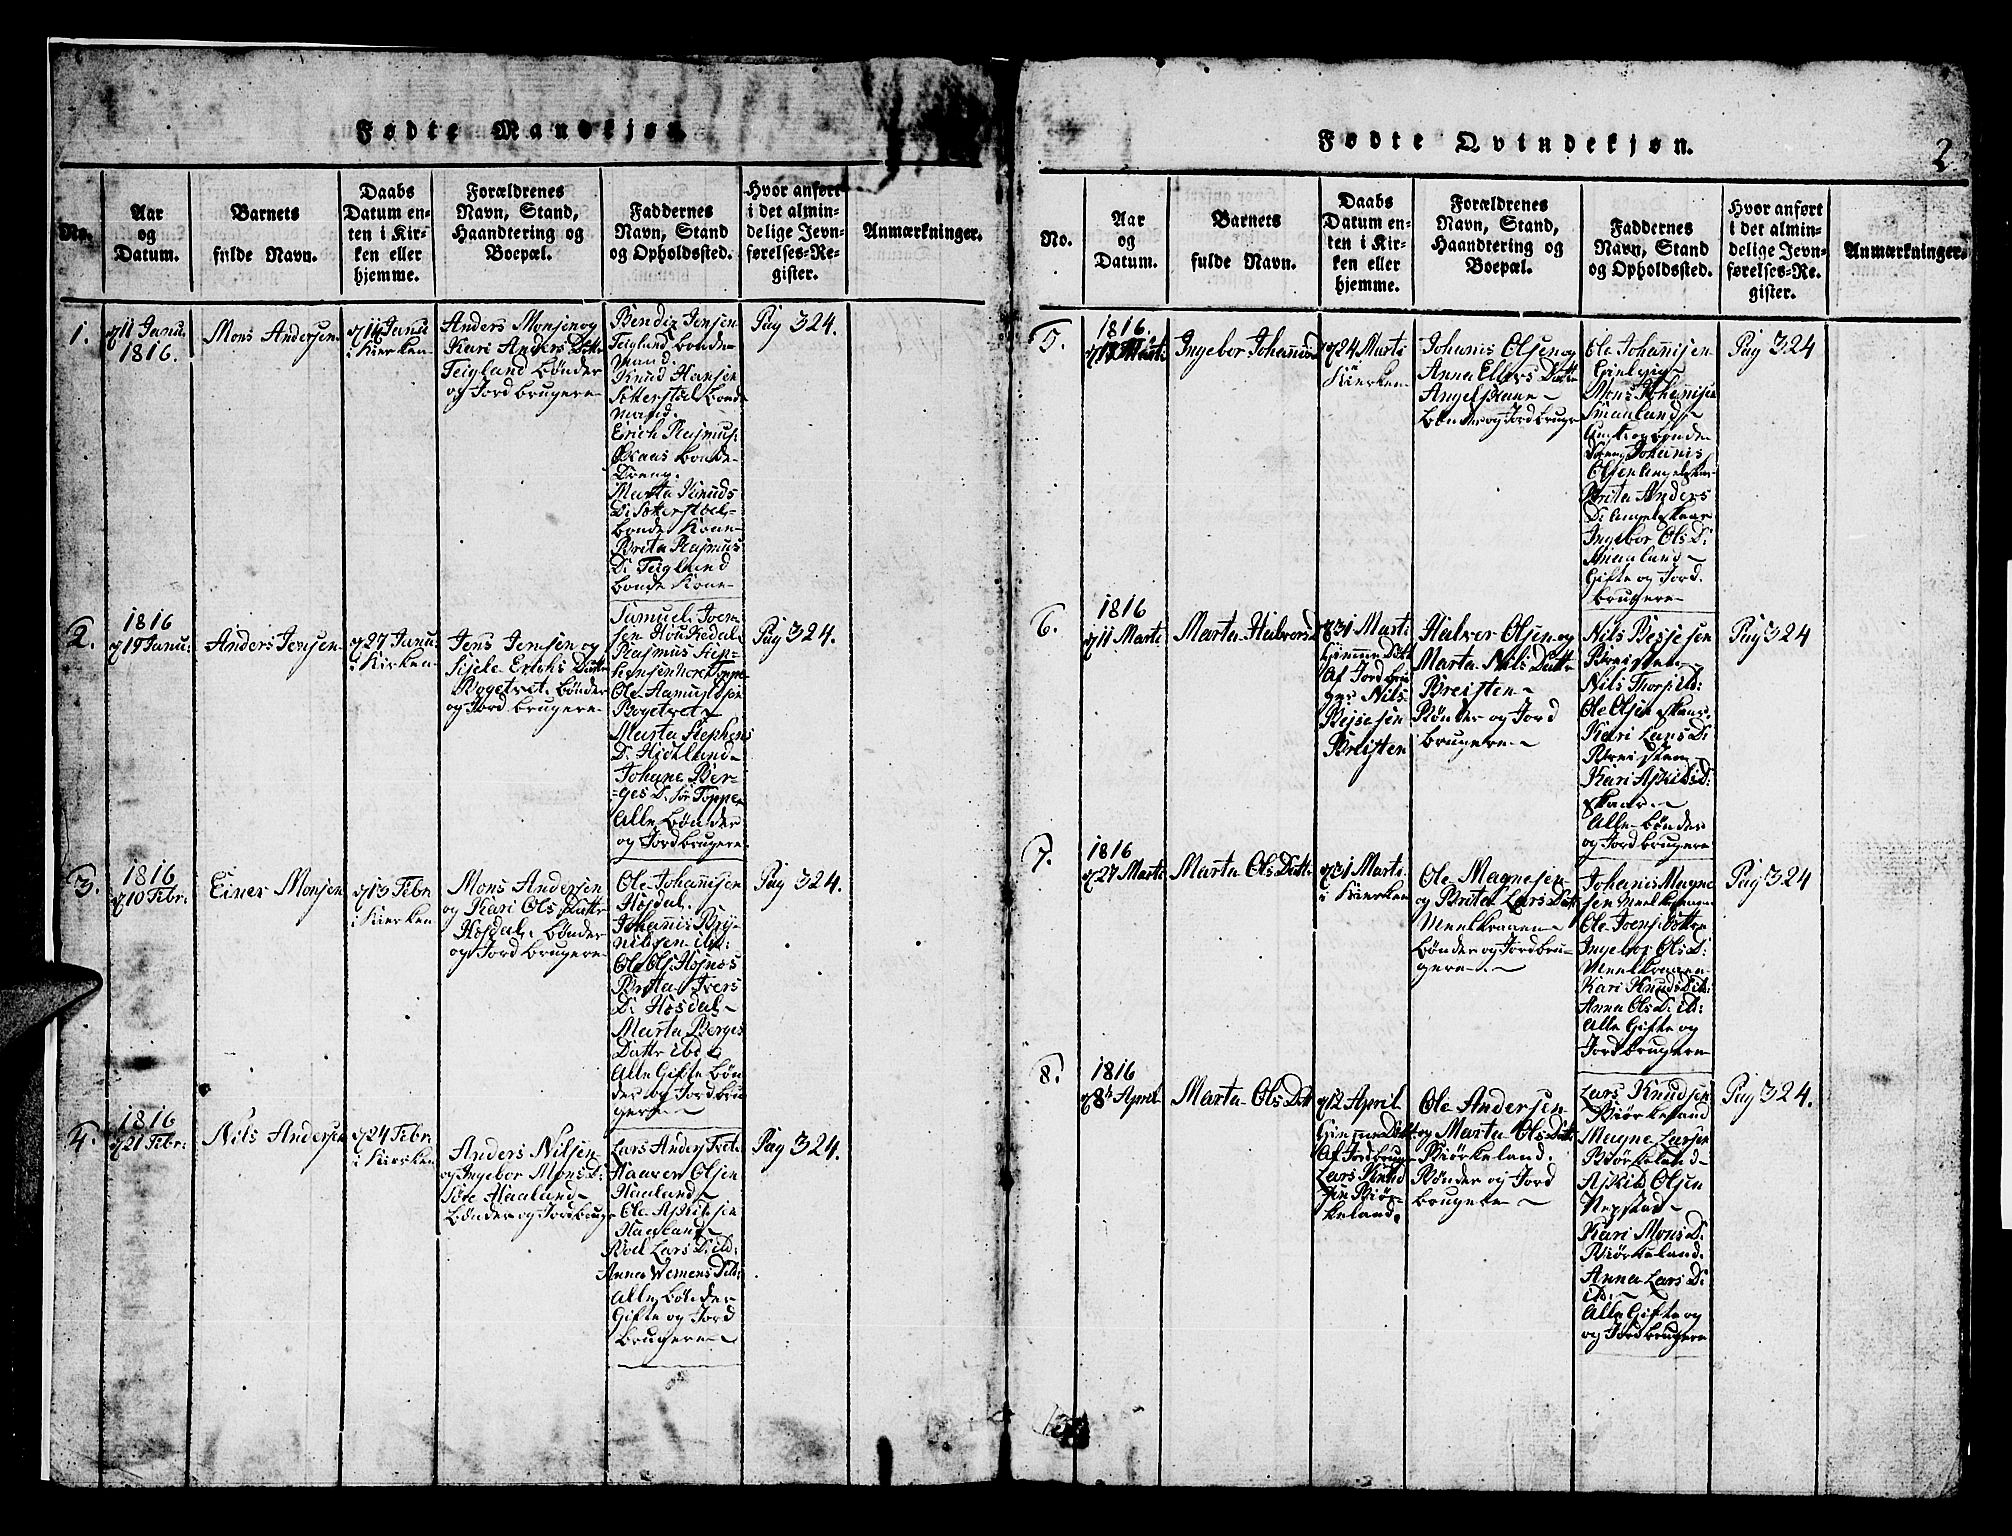 Fødte Mandkjøn.
No.
Aar
og
Datum.
Barnets
fulde Navn.
Daabs
Datum en-
ten i Kir-
ken eller
hjemme.
Forældrenes
Navn, Stand,
Haandtering og
Boepæl.
Faddernes
Navn, Stand
og Opholdssted.
Hvor anført
i det almin-
delige Jevn-
førelses-Re-
gister.
Anmærkninger.
1.
11 Janu.
1816.
Mons Andersen
16 Janu
i Kierken
Anders Monsen og
Kari Anders Dattr
Teigland bønder
og Jord brugere
Bendix Jensen
Teigland bonde
mand.
Knud Hansen
Sekerstøl bonde
mand.
Erich Rasmus:
Skaas bonde
Dreng.
Marta Knuds
D: Sekerstøel
bonde Kone
Brita Rasmus
D: Teiglund
bonde Kone
Pag 324.
2.
1816
19 Janu:
Anders Jensen
27 Janu:
i Kierken
Jens Jensen og
Sisele Erichs Dattr
Bogetvet. bønder
og Jord brugere
Samuel Joen
sen Houkedal
Rasmus Step-
hensen Nore Toppe
Ole Aamundsen
Bogetvet
Marta Stephens
D. Hicklund
Johane Ber-
ges D. Sør Toppe
Alle bønder
og Jordbrugere
Pag 324.
3.
1816
10 Febr:
Einer Monsen
13 Febr
i Kierken
Mons Andersen
og Kari Ols Dattr
Hosdal. bønder
og Jord brugere
Ole Johannisen
Hosdal.
Johannis Bry-
nildsen
Ole Ols: Hosnos
Brita Ivers
D: Hosdal
Marta Berges
Dattr ibd
Alle Gifte bøn
der og Jordbru
gere
Pag 324.
4.
1816
21 Febr:
Nils Andersen
24 Febr
i Kierken
Anders Nilsen
og Ingebor Mons D:
Søre Haaland
bønder og Jordbruge
Lars Anders Tvet:
Haaver Olsen
Haaland
Ole Askilsen
Haaland
Boel Lars D: ibd:
Anna Wemens D ibd:
Alle bønder
Gifte og Jord
brugere
Pag 324.
Fødte Qvindekjøn.
2
No.
Aar
og
Datum.
Barnets
fulde Navn.
Daabs
Datum en-
ten i Kir-
ken eller
hjemme.
Forældrenes
Navn, Stand,
Haandtering og
Boepæl.
Faddernes
Navn, Stand
og Opholdssted.
Hvor anført
i det almin-
delige Jevn-
førelses-Re-
gister.
Anmærkninger.
5.
1816.
Marti
Ingebor Johannisd
24 Marti
i Kierken
Johanis Olsen og
Anna Ellevs Dattr
Angelskaar
bønder og Jordbruge
Ole Johannisen
Gielvig
Mons Johannisen
Smaaland
bonde
Dreng Johanis
Olsen Angelskaar
Brita Anders
D: Angelskaar
Ingebor Ols D:
Smaaland
Gifte og Jord.
brugere
Pag 324
6.
1816
11 Marti
Marta Halvorsd
31 Marti
Hiemme Døbt
Af Jord bru
ger Nils
Bessesen
Breisten
Halver Olsen og
Marta Nils Dattr
Breisten
Bønder og Jord
brugere
Nils Bessesen
Breisten
Nils Thors: ibd:
Ole Olsen Skaar
Kari Lars D:
Breisten
Kari Askilds D:
Skaar
Alle bønder
og Jordbrugere
Pag 324
7.
1816
27 Marti
Marta Ols Dattr
31 Marti
i Kierken
Ole Magnesen
og Brita Lars Dattr
Meelkraaen
bønder og Jordbru-
gere
Johanis Magne
sen Meelkraaen
Ole Joens:
Ingebor Ols D:
Meelkraaen
Kari Knuds D ibd:
Anna Ols D: ibd:
Alle Gifte og
Jordbrugere
Pag 324
8.
1816
8 April
Marta Ols Datt
12 April
Hiemme Døbt
Af Jordbruger
Lars Knud
sen Biør-
keland.
Ole Andersen
og Marta Ols Dattr
Biørkeland.
Bønder og Jord
brugere
Lars Knudsen
Biørkeland
Magne Larsen
Biørkeland
Askild Olsen
Nepstad
Kari Mons D:
Biørkeland:
Anna Lars D:
ibd:
Alle Gifte og
og Jordbrugere
Pag 324.